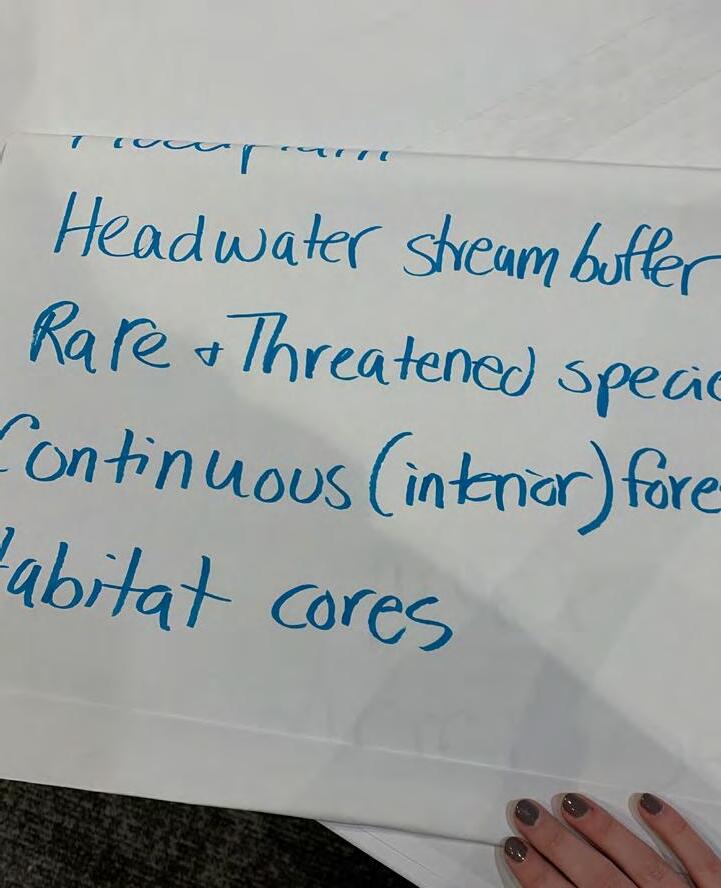 Headwater stream buffer
Rare + Threatened specie
Continuous (interior) fore
Habitat cores